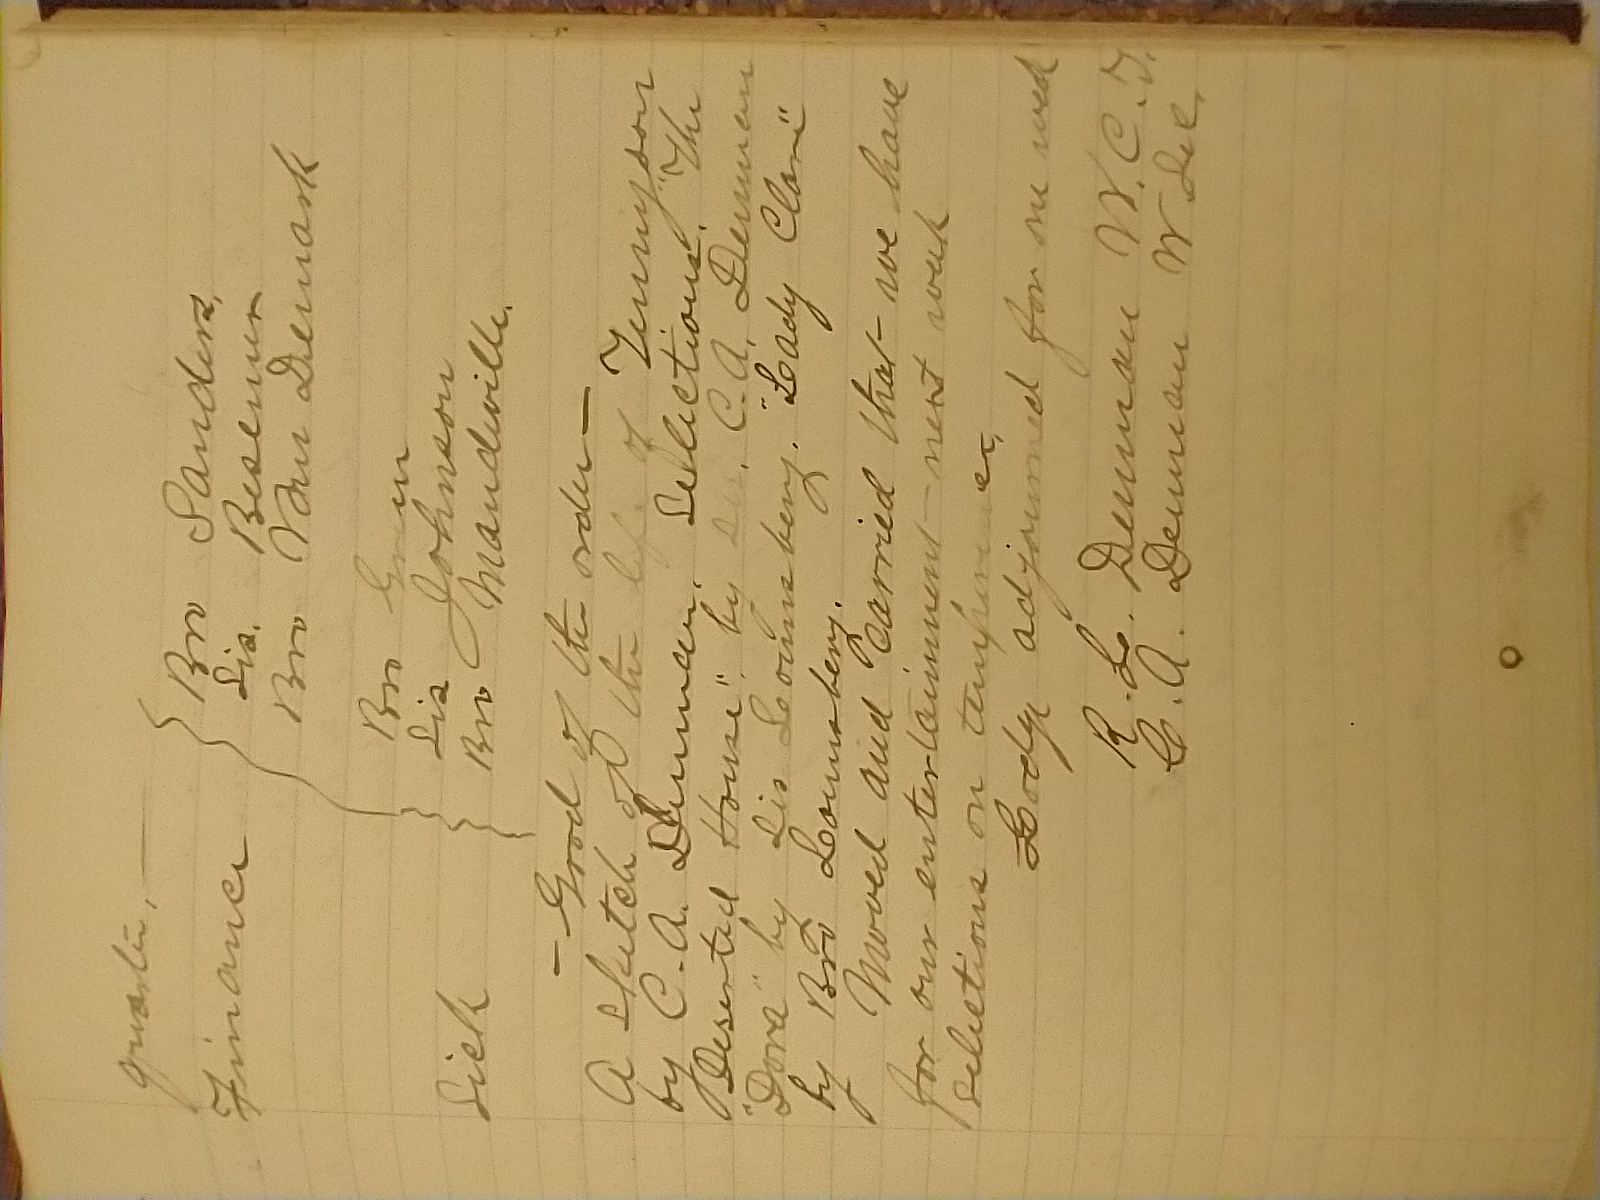 quarter, —
Bro Sanders,
Finance
Sis. Besemer
Bro Van Demark
Bro Green
Sis Johnson
Sick
Bro Mandeville.
— Good of the order —
A sketch of the life of Tennyson
by C. A. Denman. Selections. "The
Deserted House". by Sis. C. A. Denman
"Dora" by Sis Lounsbery. "Lady Clare"
by Bro Lounsbery.
Moved and carried that we have
for our entertainment next week
selections on temperance,
Lodge adjourned for one week
R. L. Denman W. C. T.
C. A. Denman W Sec.